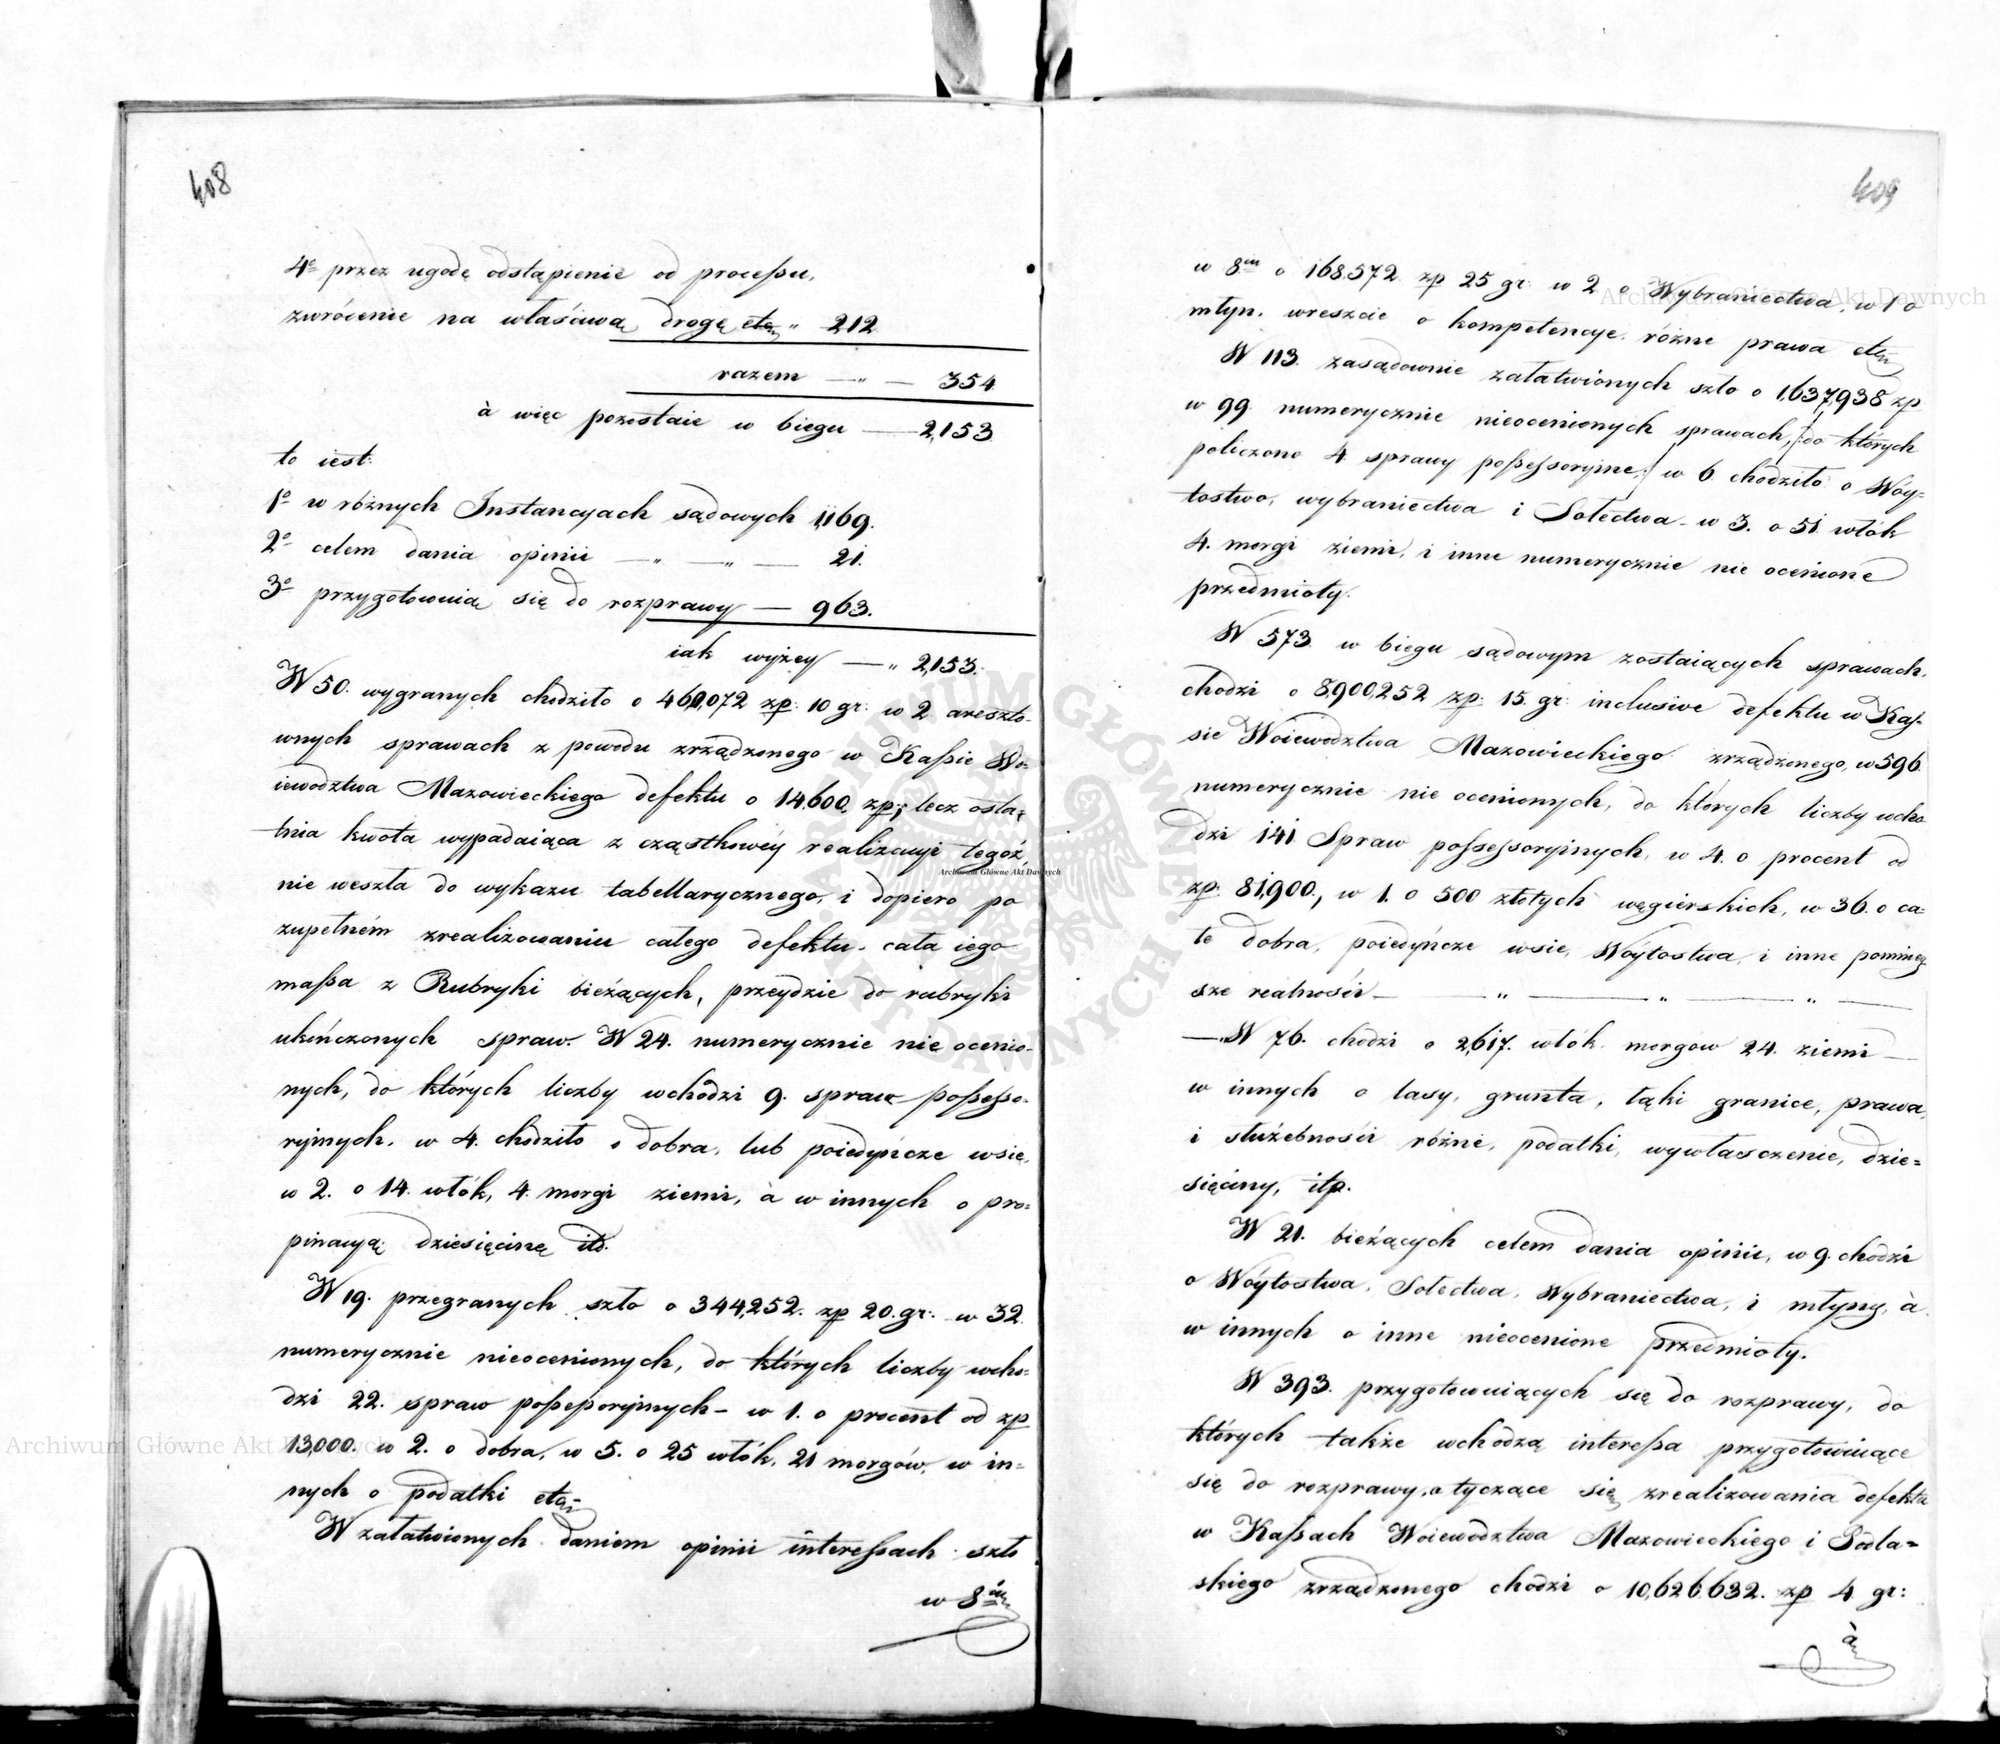 408
4º przez ugodę odstąpienie od processu,
zwrócenie na właściwą drogę etc „ 212
razem — „ — 354
à więc pozostaie w biegu — 2,153
to iest:
1º w różnych Instancyach sądowych 1,169.
2º celem dania opinii — „ — „ — 21.
3º przygotowuią się do rozprawy — 963.
iak wyżey — „ 2,153.
W 50. wygranych chodziło o 460,072 zp: 10 gr: w 2 areszto-
wnych sprawach z powodu zrządzonego w Kassie Wo-
iewództwa Mazowieckiego defektu o 14,600 zp; lecz osta-
tnia kwota wypadaiąca z cząstkowéy realizacyi tegoż,
nie weszła do wykazu tabellarycznego, i dopiero po
zupełném zrealizowaniu całego defektu, cała iego
massa z Rubryki bieżących, przeydzie do rubryki
ukończonych spraw. W 24. numerycznie nie ocenio-
nych, do których liczby wchodzi 9. spraw possesso-
ryinych, w 4. chodziło o dobra, lub poiedyńcze wsie,
w 2. o 14. włók, 4. morgi ziemi, à w innych o pro-
pinacyą, dziesięcinę itd.
W 19. przegranych szło o 344,252. zp 20. gr: w 32
numerycznie nieocenionych, do których liczby wcho-
dzi 22. spraw possessoryinych - w 1. o procent od zp
13,000. w 2. o dobra, w 5. o 25 włók, 21 morgów, w in-
nych o podatki etc.
W załatwionych daniem opinii interessach szło
w 8iu
409
w 8iu o 168,572 zp 25 gr: w 2 o Wybraniectwa, w 1 o
młyn, wreszcie o kompetencye, różne prawa etc
W 113. zasądownie załatwionych szło o 1,637,938 zp
w 99. numerycznie nieocenionych sprawach, /:do których
policzono 4. sprawy possessoryine:/ w 6 chodziło o Wóy-
tostwo, wybraniectwa i Sołectwa - w 3. o 51 włók
4. morgi ziemi, i inne numerycznie nie ocenione
przedmioty.
W 573 w biegu sądowym zostaiących sprawach,
chodzi o 8,900,252 zp: 15. gr: inclusive defektu w Kas-
sie Woiewództwa Mazowieckiego zrządzonego, w 596
numerycznie nie ocenionych, do których liczby wcho-
dzi 141 Spraw possessoryinych, w 4. o procent od
zp: 81,900., w 1. o 500 złotych węgierskich, w 36. o ca-
łe dobra, poiedyńcze wsie, Wóytostwa, i inne pomniey-
sze realności — „ — „ — „ —
— W 76. chodzi o 2,617. włók morgów 24. ziemi —
w innych o lasy, grunta, łąki granice, prawa,
i służebności różne, podatki, wywłaszczenie, dzie-
sięciny, itp.
W 21. bieżących celem dania opinii, w 9. chodzi
o Wóytostwa, Sołectwa, Wybraniectwa, i młyny, à
w innych o inne nieocenione przedmioty.
W 393. przygotowuiących się do rozprawy, do
których także wchodzą interessa przygotowuiące
się do rozprawy, a tyczące się zrealizowania defektu
w Kassach Woiewództwa Mazowieckiego i Podla-
skiego zrządzonego chodzi o 10,626,632. zp 4 gr:
à
Archiwum Główne Akt Dawnych
Archiwum Główne Akt Dawnych
Archiwum Główne Akt Dawnych
ARCHIWUM GŁÓWNE AKT DAWNYCH